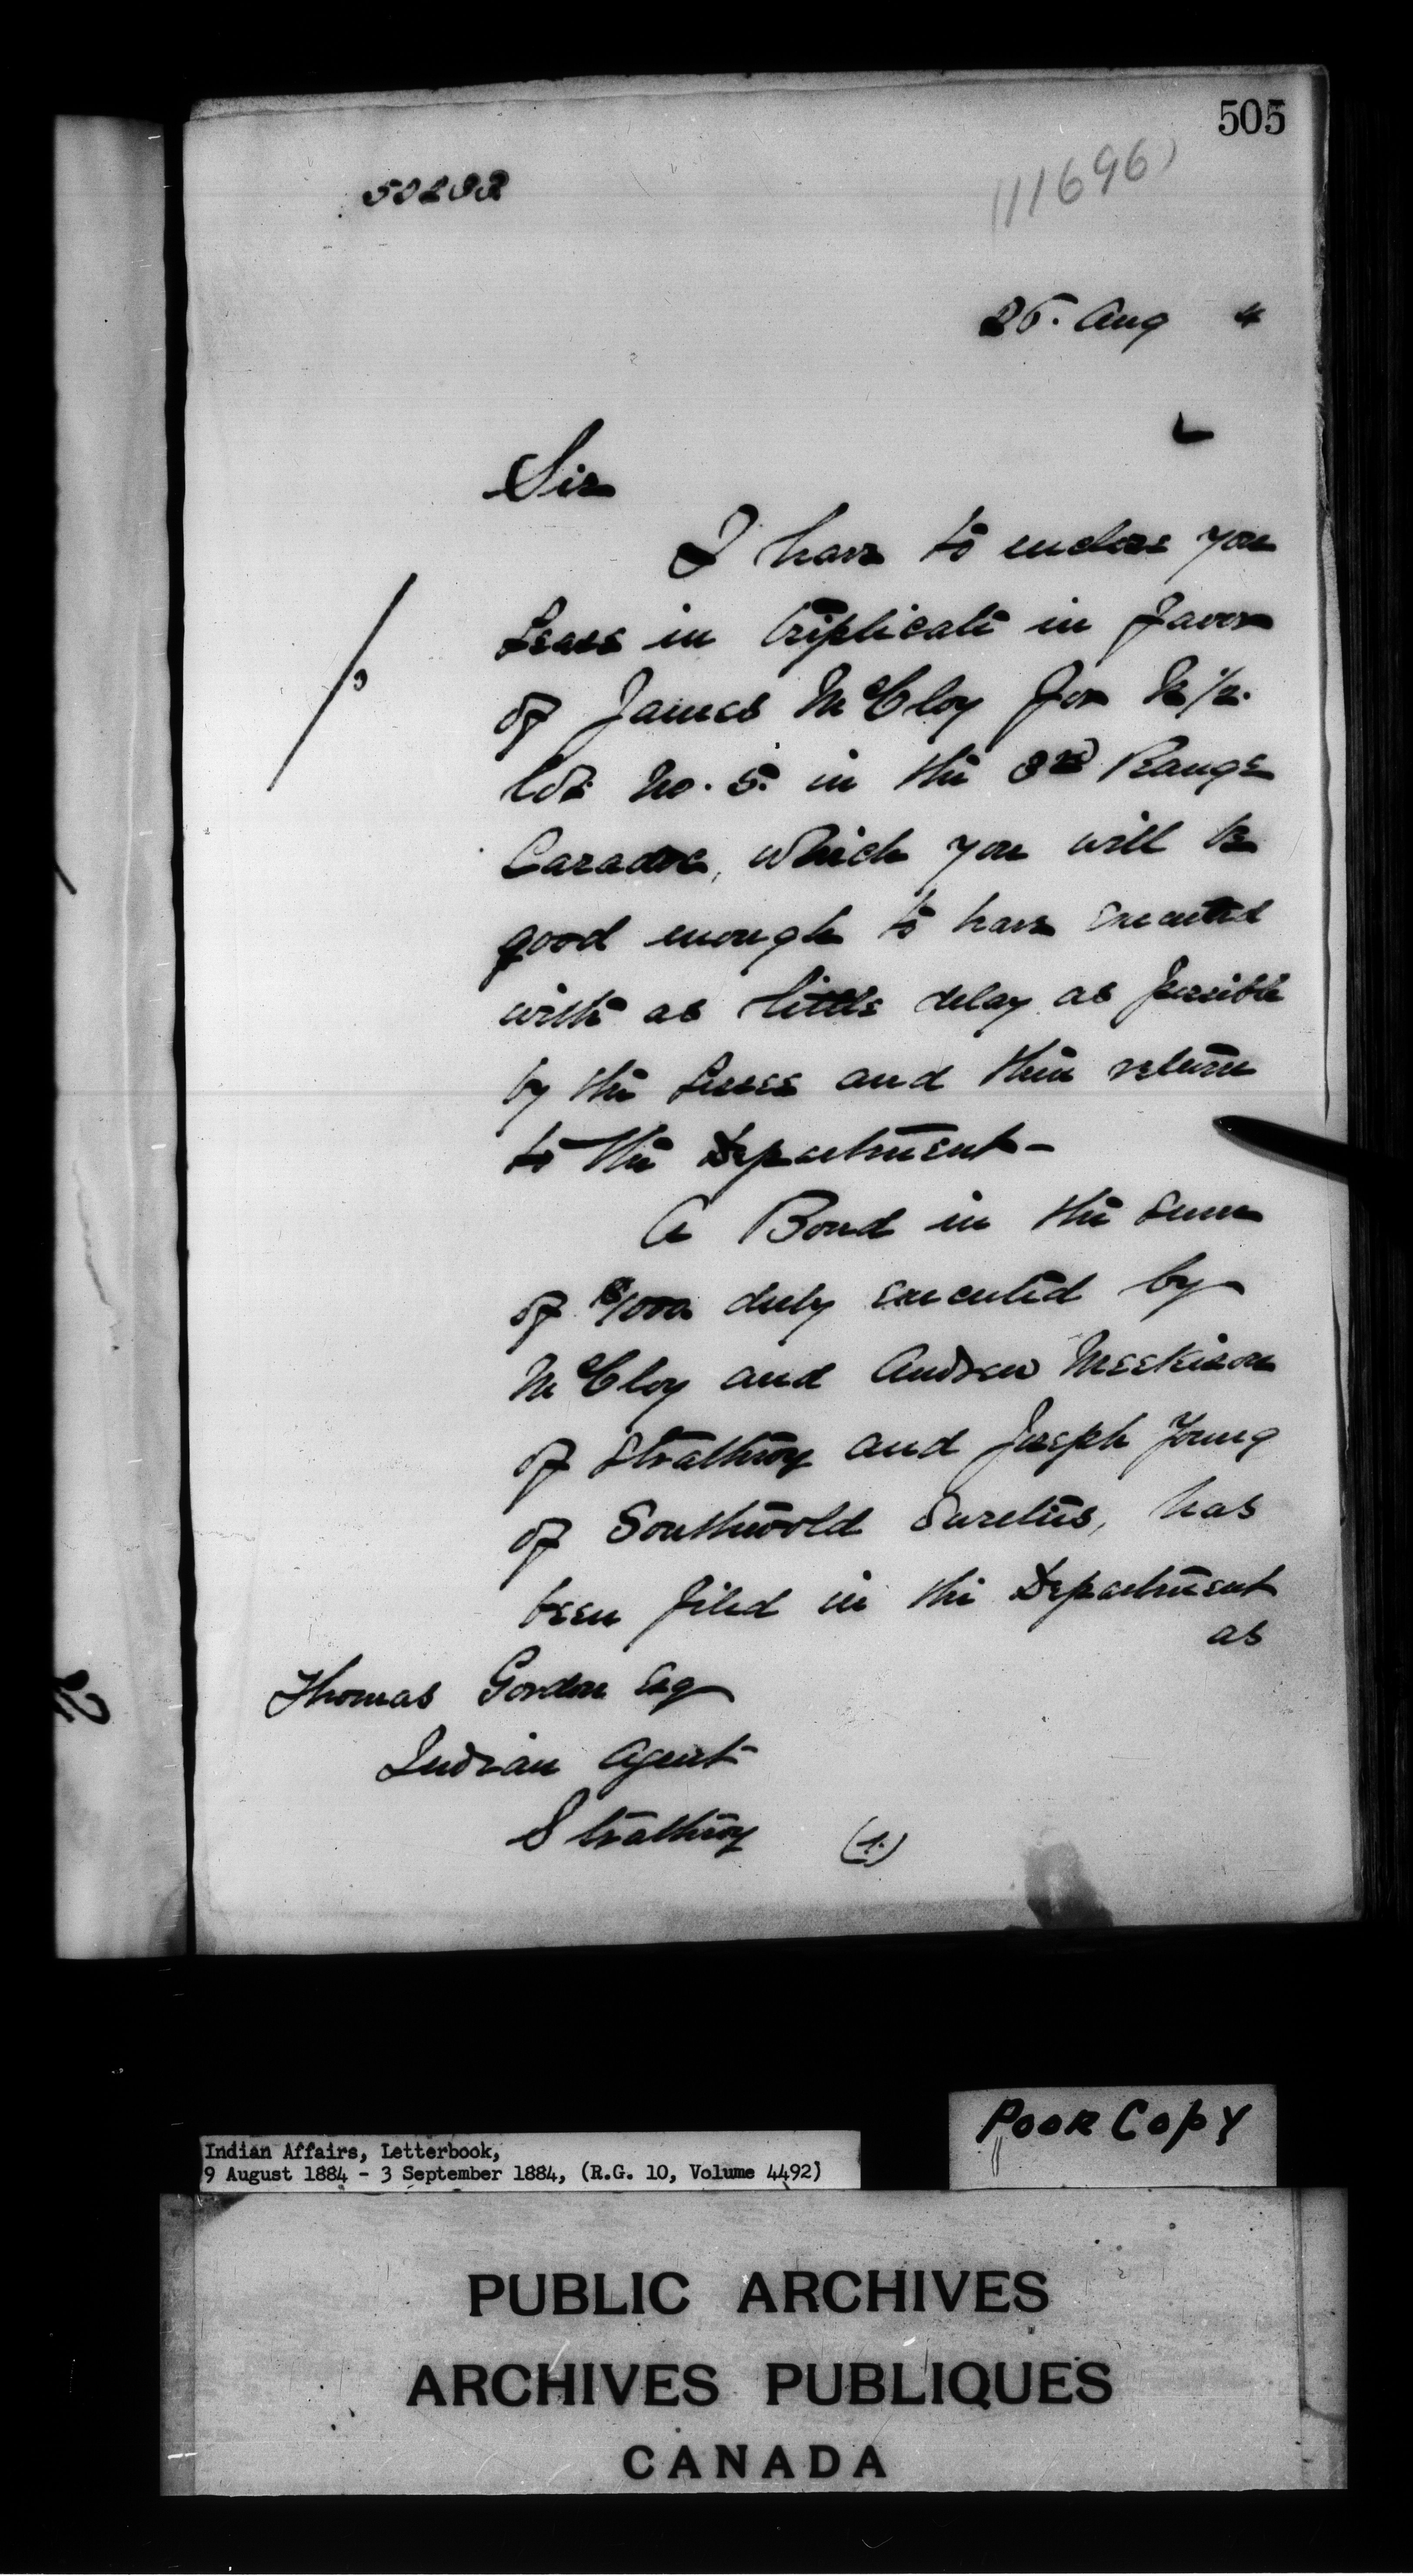 505
(11696)
26. Aug 4
Sir
I have to enclose you
Lease in triplicate in favor
of James McCloy for N 1/2.
lot No. 5. in the 3rd Range
Caradoc, which you will be
good enough to have executed
with as little delay as possible
by the Lessee and then return
to the Department -
A Bond in the sum
of $1000 duly executed by
McCloy and Andrew Meekison
of Strathroy and Joseph Young
of Southwold Sureties, has
been filed in the Department
as
Thomas Gordon Esq
Indian Agent
Strathroy (1.)
Poor Copy
Indian Affairs, Letterbook,
9 August 1884 - 3 September 1884, (R.G. 10, Volume 4492)
PUBLIC ARCHIVES
ARCHIVES PUBLIQUES
CANADA